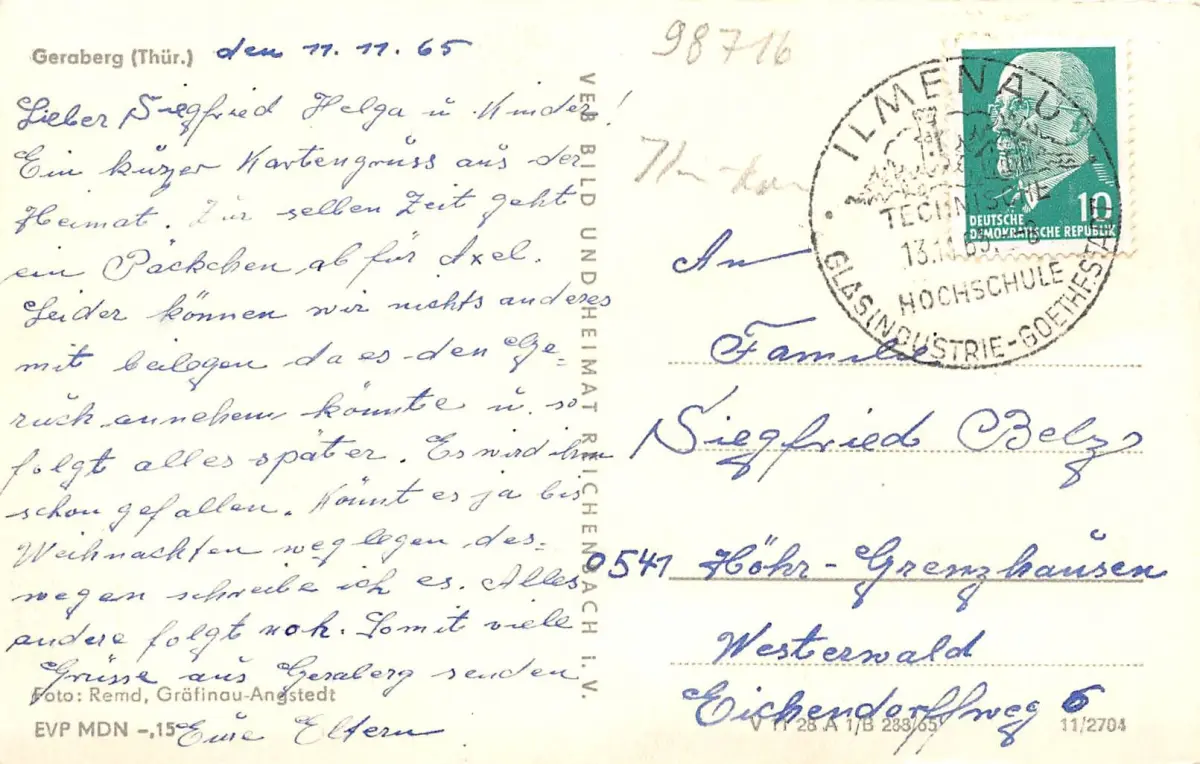 Geraberg (Thür.) den 11. 11. 65
Lieber Siegfried Helga u. Kinder!
Ein kurzer Kartengruss aus der
Heimat. Zur selben Zeit geht
ein Päckchen ab für Axel.
Leider können wir nichts anderes
mit beilegen da es den Ge-
ruch annehem könnte u. so
folgt alles später. Es wird ihm
schon gefallen. Könnt es ja bis
Weihnachten weglegen des-
wegen schreibe ich es. Alles
andere folgt noh. Somit viele
Grüsse aus Geraberg senden
Foto: Remd, Gräfinau-Angstedt
EVP MDN -,15 Eure Eltern
VEB BILD UND HEIMAT REICHENBACH I. V.
98716
ILMENAU
TECHNISCHE
13.11.65
HOCHSCHULE
GLASINDUSTRIE-GOETHESTADT
10
DEUTSCHE
DEMOKRATISCHE REPUBLIK
An
Familie
Siegfried Belz
0541 Höhr-Grenzhausen
Westerwald
Eichendorffweg 6
V 11 28 A 1/B 288/65 11/2704